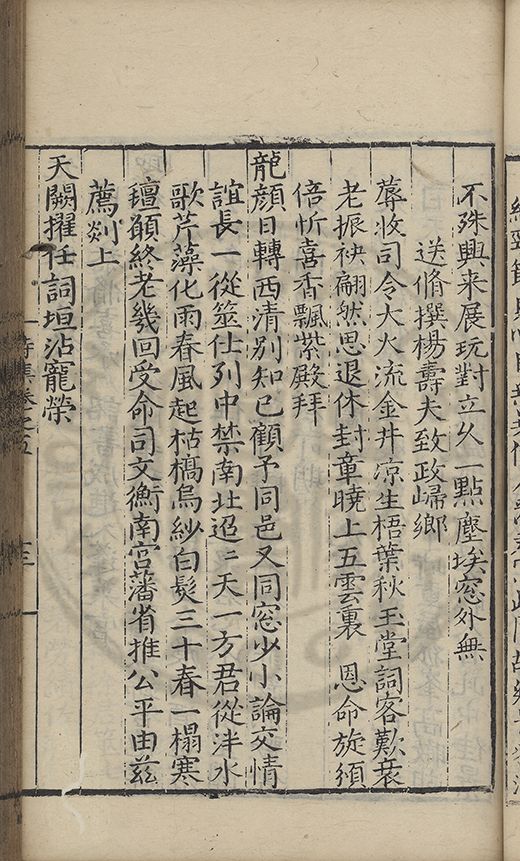 不殊興来展玩對立久一點塵埃窓外無
送脩撰楊壽夫致政歸鄉
蓐收司令大火流金井凉生梧葉秋玉堂詞客歎衰
老振袂翩然思退休封章曉上五雲裏 恩命旋須
倍忻喜香飄紫殿拜
龍顔日轉西清別知已顧予同邑又同窓少小論交情
誼長一從筮仕列中禁南北迢〻天一方君從泮水
歌芹藻化雨春風起枯槁烏紗白髮三十春一榻寒
氊願終老幾回受命司文衡南宫藩省推公平由兹
薦剡上
天闕擢任詞垣沾寵榮
詩集卷之五